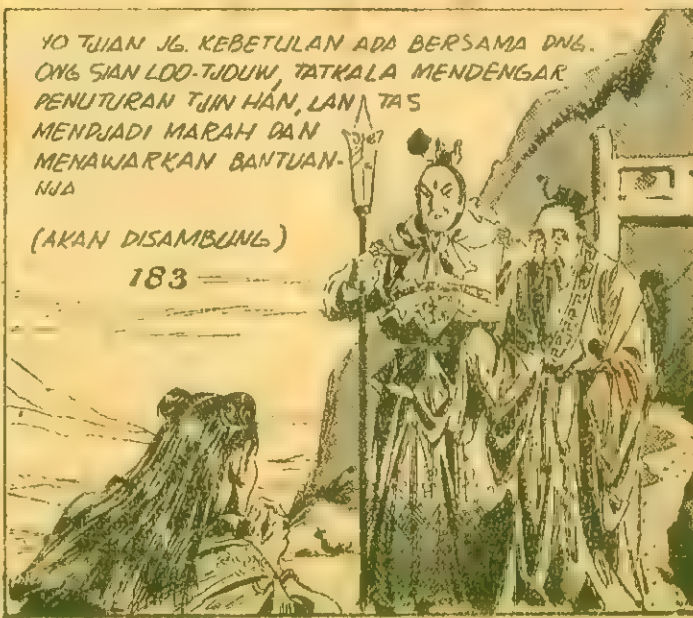 YO TJIAN JG. KEBETULAN ADA BERSAMA DNG.
ONG SIAN LOO-TJOUW, TATKALA MENDENGAR
PENUTURAN TJIN HAN, LANTAS
MENDJADI MARAH DAN
MENAWARKAN BANTUAN-
NJA
(AKAN DISAMBUNG)
183